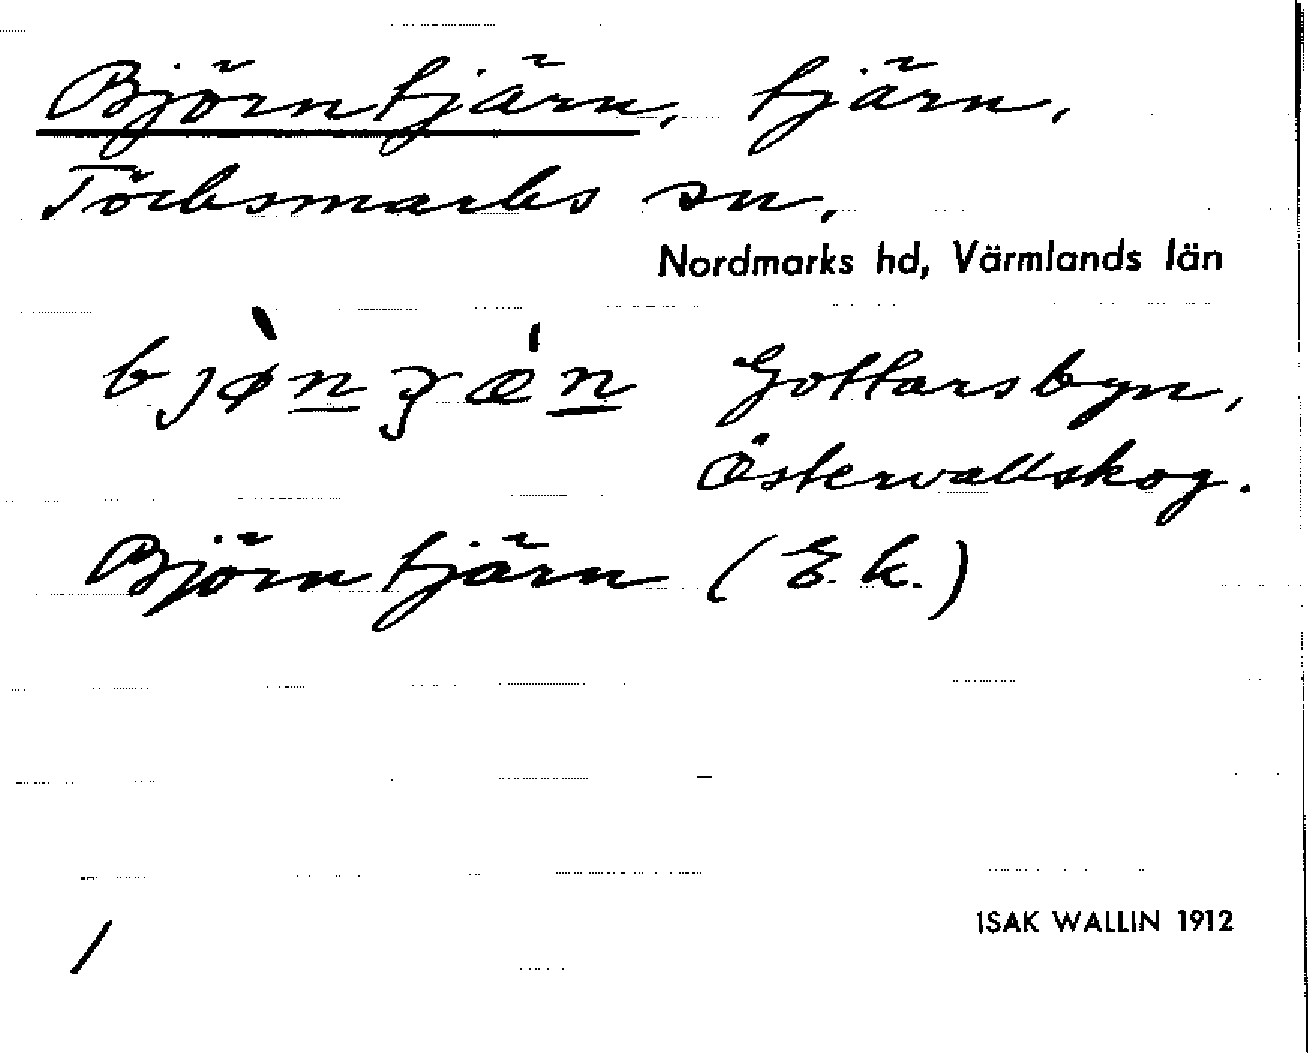 Björntjärn, tjärn,
Töcksmarks sn,
Nordmarks hd, Värmlands län
Gottarsbyn,
Östervallskog.
Björntjärn (E.k.)
1
ISAK WALLIN 1912